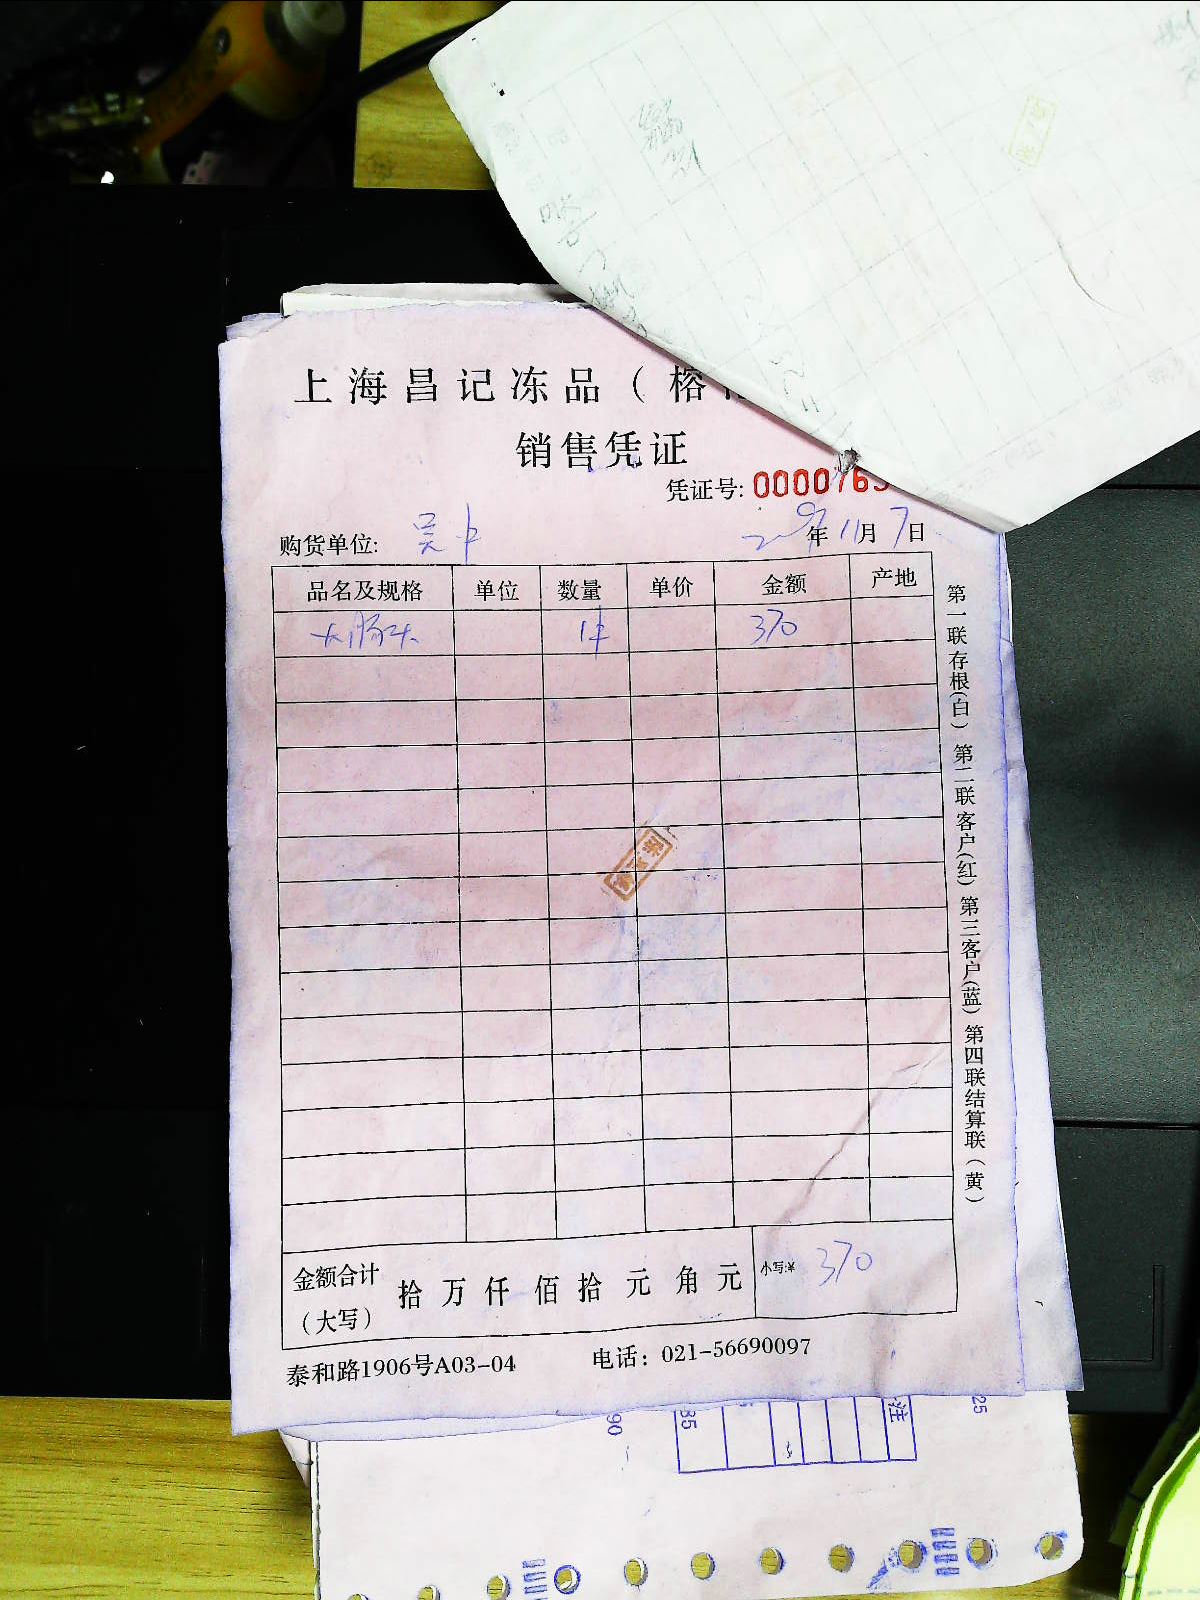 上海昌记冻品（榕
销售凭证
凭证号: 0000765
购货单位: 吴中 年11月7日
品名及规格 单位 数量 单价 金额 产地
大肠头 1件 370
金额合计（大写） 拾 万 仟 佰 拾 元 角 元 小写:¥ 370
泰和路1906号A03-04 电话：021-56690097
第一联存根(白) 第二联客户(红) 第三客户(蓝) 第四联结算联(黄)
90
35
注
25